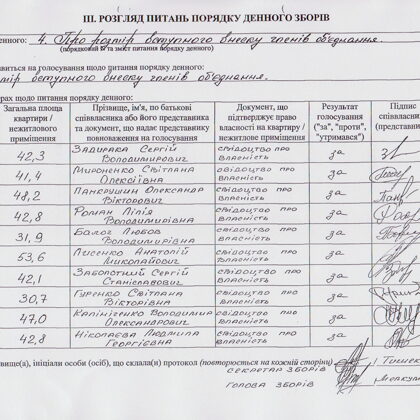 ІІІ. РОЗГЛЯД ПИТАНЬ ПОРЯДКУ ДЕННОГО ЗБОРІВ
енного: 4. Про розмір вступного внеску членів об'єднання.
(порядковий № та зміст питання порядку денного)
виться на голосування щодо питання порядку денного:
мір вступного внеску членів об'єднання.
рах щодо питання порядку денного:
Загальна площа квартири / нежитлового приміщення
Прізвище, ім'я, по батькові співвласника або його представника та документ, що надає представнику повноваження на голосування
Документ, що підтверджує право власності на квартиру / нежитлове приміщення
Результат голосування ("за", "проти", "утримався")
Підпис співвласни (представн
42,3 Задирака Сергій Володимирович свідоцтво про власність за
41,4 Мироненко Світлана Олексіївна свідоцтво про власність за
48,2 Панкрушин Олександр Вікторович свідоцтво про власність за
42,8 Роман Лілія Володимирівна свідоцтво про власність за
31,9 Балог Любов Володимирівна свідоцтво про власність за
53,6 Лисенко Анатолій Миколайович свідоцтво про власність за
42,1 Заболотний Сергій Станіславович свідоцтво про власність за
30,7 Гуренко Світлана Вікторівна свідоцтво про власність за
47,0 Володимир Олександрович свідоцтво про власність за
42,8 Ніколаєва Людмила Георгіївна свідоцтво про власність за
звище(а), ініціали особи (осіб), що склала(и) протокол (повторюється на кожній сторінці)
СЕКРЕТАР ЗБОРІВ
ГОЛОВА ЗБОРІВ